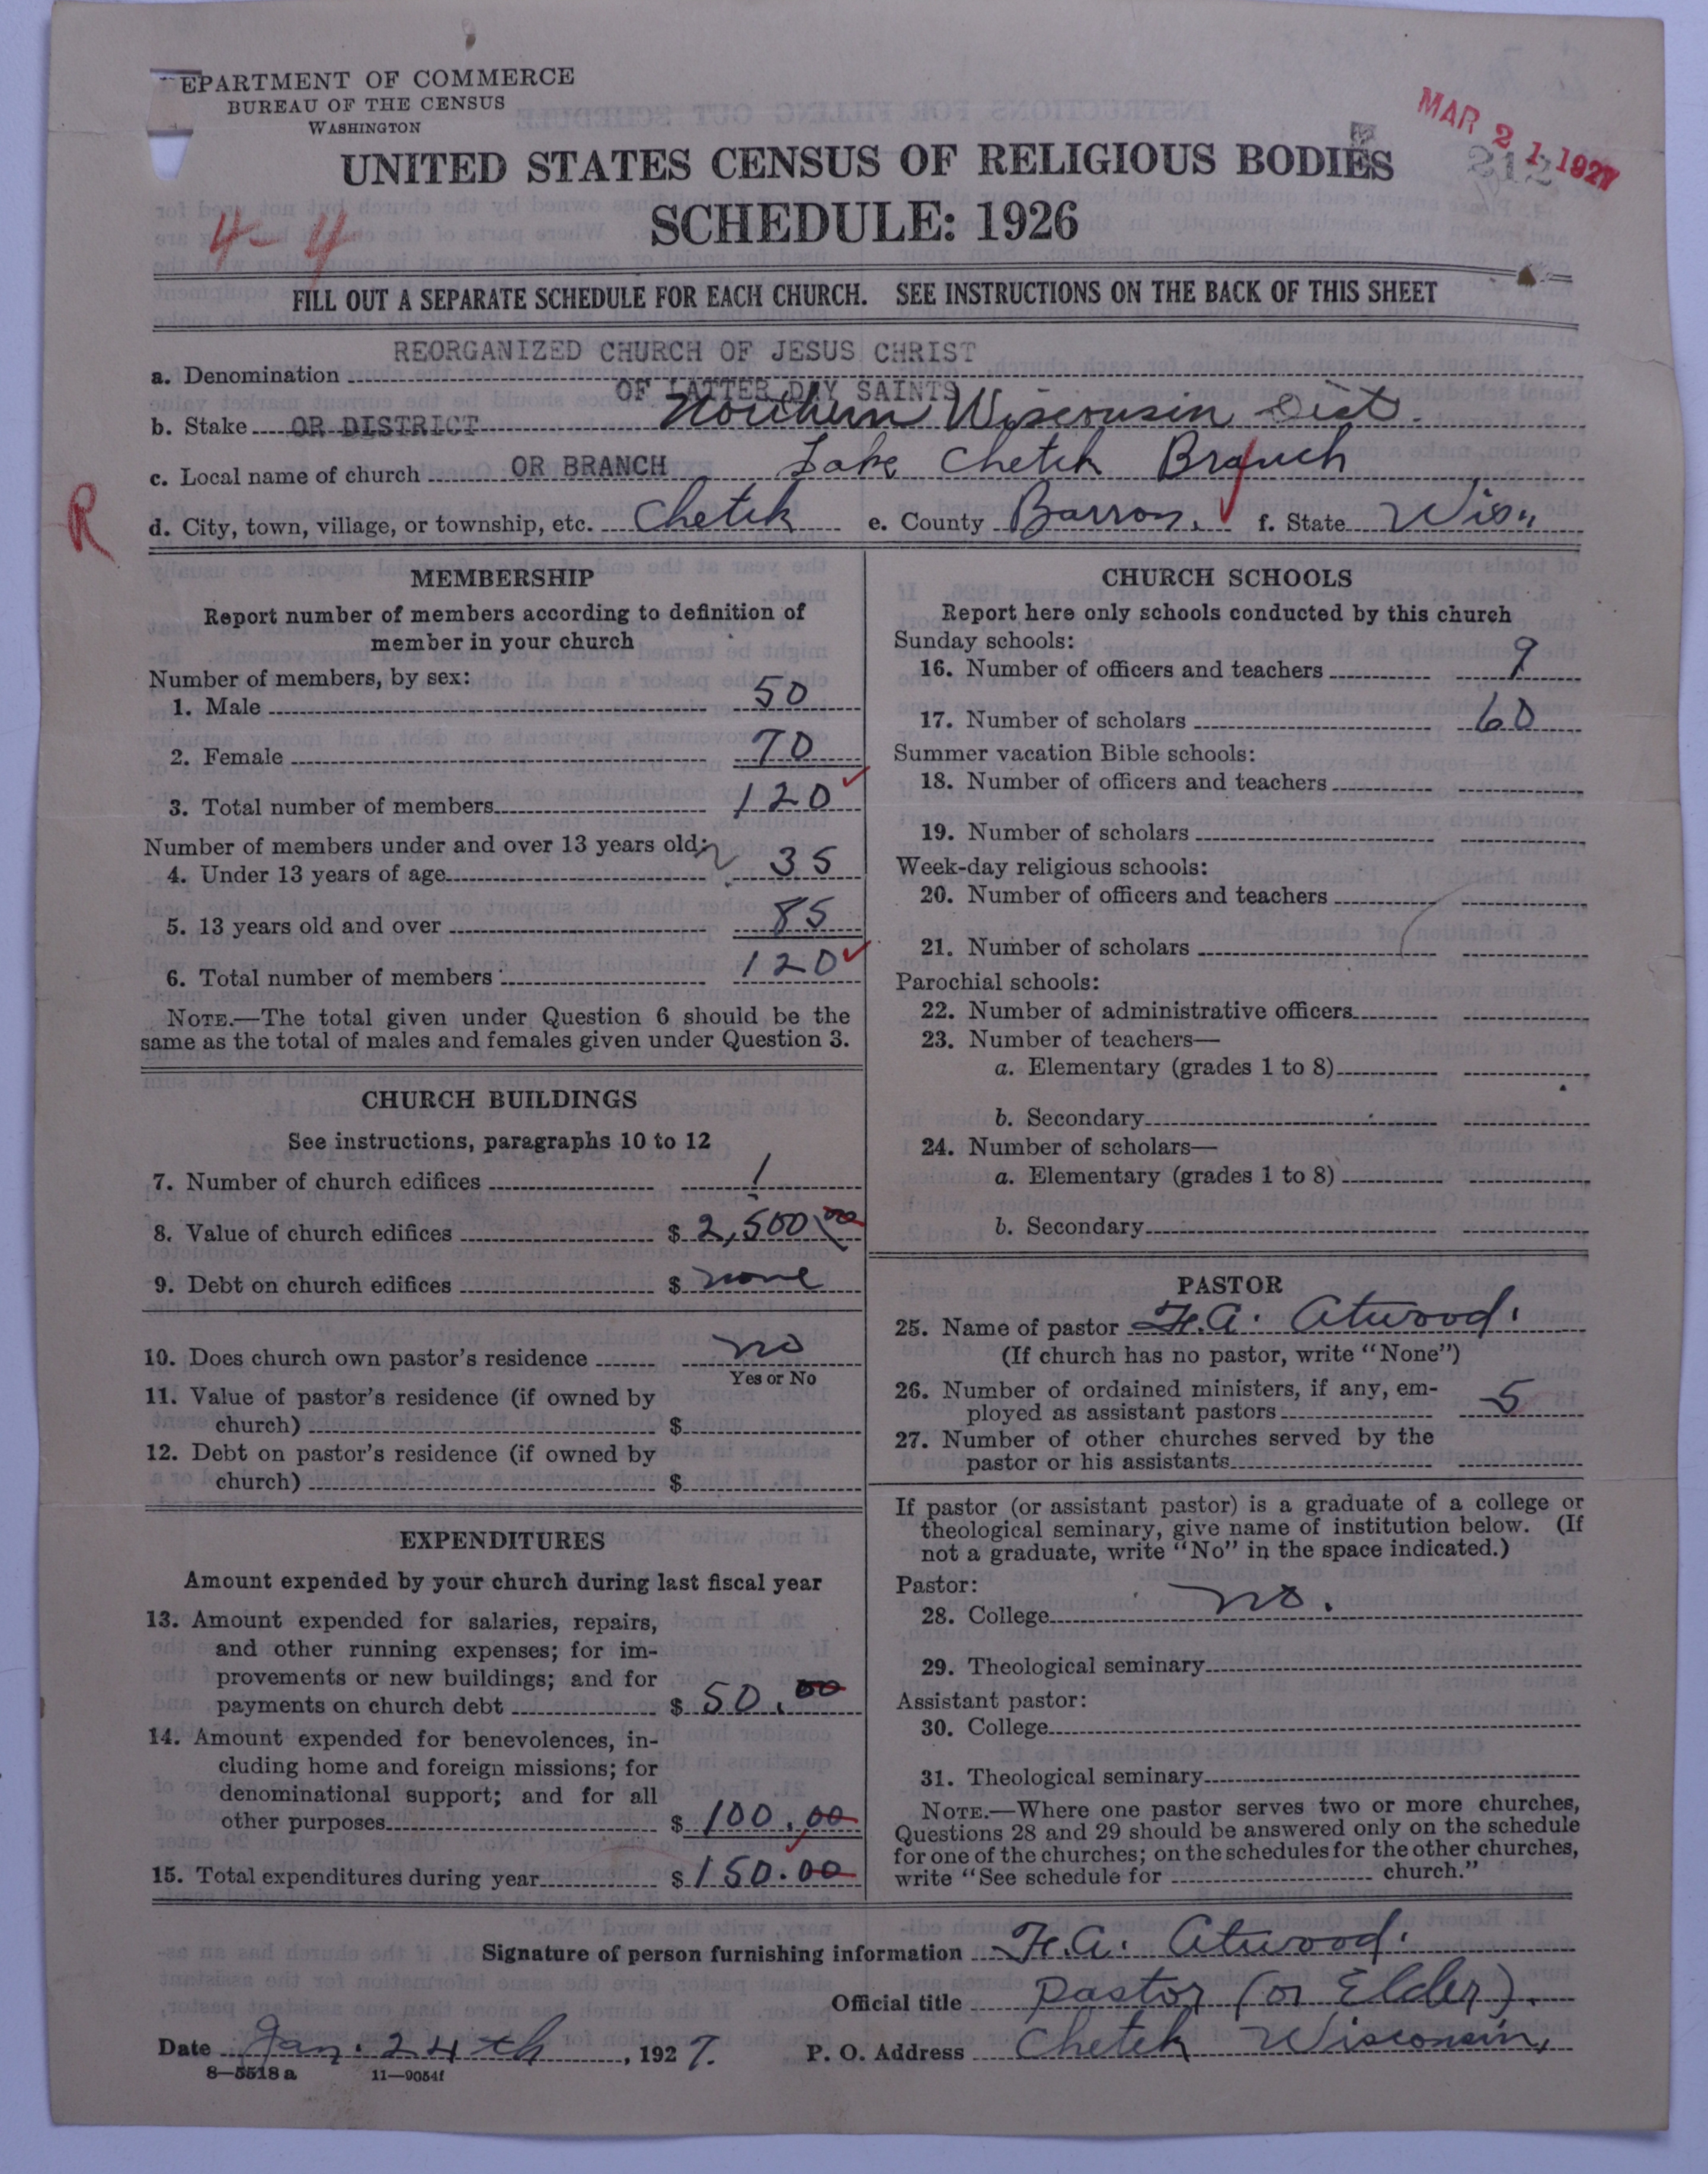 DEPARTMENT OF COMMERCE
BUREAU OF THE CENSUS
WASHINGTON
MAR 21 1927
312
UNITED STATES CENSUS OF RELIGIOUS BODIES
SCHEDULE: 1926
4-4
FILL OUT A SEPARATE SCHEDULE FOR EACH CHURCH. SEE INSTRUCTIONS ON THE BACK OF THIS SHEET
REORGANIZED CHURCH OF JESUS CHRIST
a. Denomination
OF LATTER DAY SAINTS
b. Stake OR DISTRICT Northern Wisconsin Dist.
c. Local name of church OR BRANCH Lake Chetek Branch
R
d. City, town, village, or township, etc. Chetek e. County Barron, f. State Wis.
MEMBERSHIP
Report number of members according to definition of
member in your church
Number of members, by sex:
1. Male 50
2. Female 70
3. Total number of members 120
Number of members under and over 13 years old:
4. Under 13 years of age 35
5. 13 years old and over 85
6. Total number of members 120
NOTE.—The total given under Question 6 should be the
same as the total of males and females given under Question 3.
CHURCH BUILDINGS
See instructions, paragraphs 10 to 12
7. Number of church edifices 1
8. Value of church edifices $ 2,500.00
9. Debt on church edifices $ none
10. Does church own pastor's residence no
Yes or No
11. Value of pastor's residence (if owned by
church) $
12. Debt on pastor's residence (if owned by
church) $
EXPENDITURES
Amount expended by your church during last fiscal year
13. Amount expended for salaries, repairs,
and other running expenses; for im-
provements or new buildings; and for
payments on church debt $ 50.00
14. Amount expended for benevolences, in-
cluding home and foreign missions; for
denominational support; and for all
other purposes $ 100.00
15. Total expenditures during year $ 150.00
CHURCH SCHOOLS
Report here only schools conducted by this church
Sunday schools:
16. Number of officers and teachers 9
17. Number of scholars 60
Summer vacation Bible schools:
18. Number of officers and teachers
19. Number of scholars
Week-day religious schools:
20. Number of officers and teachers
21. Number of scholars
Parochial schools:
22. Number of administrative officers
23. Number of teachers—
a. Elementary (grades 1 to 8)
b. Secondary
24. Number of scholars—
a. Elementary (grades 1 to 8)
b. Secondary
PASTOR
25. Name of pastor F.A. Atwood.
(If church has no pastor, write "None")
26. Number of ordained ministers, if any, em-
ployed as assistant pastors 5
27. Number of other churches served by the
pastor or his assistants
If pastor (or assistant pastor) is a graduate of a college or
theological seminary, give name of institution below. (If
not a graduate, write "No" in the space indicated.)
Pastor:
28. College no.
29. Theological seminary
Assistant pastor:
30. College
31. Theological seminary
NOTE.—Where one pastor serves two or more churches,
Questions 28 and 29 should be answered only on the schedule
for one of the churches; on the schedules for the other churches,
write "See schedule for church."
Signature of person furnishing information F.A. Atwood.
Official title Pastor (or Elder).
Date Jan. 24th, 1927. P. O. Address Chetek Wisconsin,
8—5518 a 11—9054f